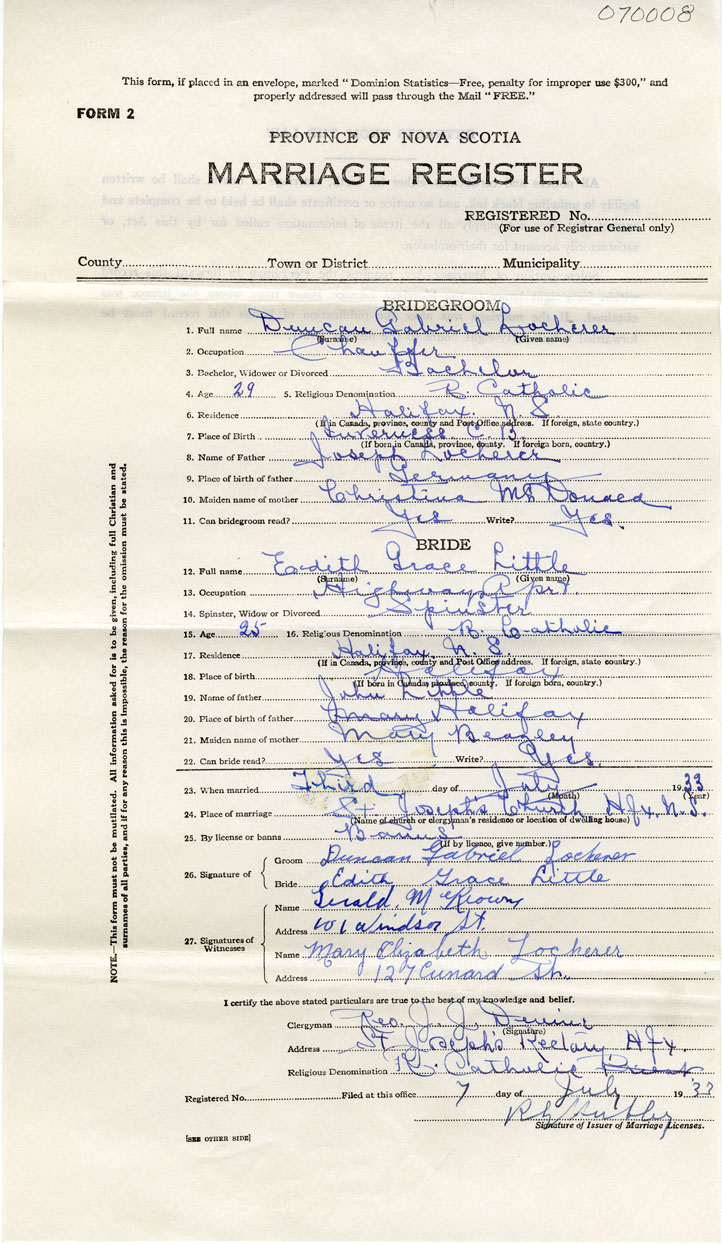 070008
This form, if placed in an envelope, marked "Dominion Statistics—Free, penalty for improper use $300," and
properly addressed will pass through the Mail "FREE."
FORM 2
PROVINCE OF NOVA SCOTIA
MARRIAGE REGISTER
REGISTERED No.
(For use of Registrar General only)
County Town or District Municipality
BRIDEGROOM
1. Full name Duncan Gabriel Locherer
(Surname) (Given name)
2. Occupation Chauffer
3. Bachelor, Widower or Divorced Bachelor
4. Age 29 5. Religious Denomination R. Catholic
6. Residence Halifax. N. S.
(If in Canada, province, county and Post Office address. If foreign, state country.)
7. Place of Birth Inverness C. B.
(If born in Canada, province, county. If foreign born, country.)
8. Name of Father Joseph Locherer
9. Place of birth of father Germany
10. Maiden name of mother Christina McDonald
11. Can bridegroom read? Yes Write? Yes.
BRIDE
12. Full name Edith Grace Little
(Surname) (Given name)
13. Occupation Highway
14. Spinster, Widow or Divorced Spinster
15. Age 25 16. Religious Denomination R. Catholic
17. Residence Halifax, N. S.
(If in Canada, province, county and Post Office address. If foreign, state country.)
18. Place of birth Halifax
(If born in Canada, province, county. If foreign born, country.)
19. Name of father John Little
20. Place of birth of father Halifax
21. Maiden name of mother Mary Beazley
22. Can bride read? Yes Write? Yes.
23. When married Third day of July 1933
(Month) (Year)
24. Place of marriage St Joseph's Church Hfx. N. S.
(Name of church or clergyman's residence or location of dwelling house)
25. By license or banns Banns
(If by licence, give number.)
26. Signature of
Groom Duncan Gabriel Locherer
Bride Edith Grace Little
27. Signatures of Witnesses
Name Gerald McKeown
Address 101 Windsor St.
Name Mary Elizabeth Locherer
Address 127 Cunard St.
I certify the above stated particulars are true to the best of my knowledge and belief.
Clergyman Rev. J. J.
(Signature)
Address St Joseph's Rectory Hfx.
Religious Denomination R. Catholic Priest
Registered No. Filed at this office 7 day of July 1933
Signature of Issuer of Marriage Licenses.
[SEE OTHER SIDE]
NOTE.—This form must not be mutilated. All information asked for is to be given, including full Christian and
surnames of all parties, and if for any reason this is impossible, the reason for the omission must be stated.